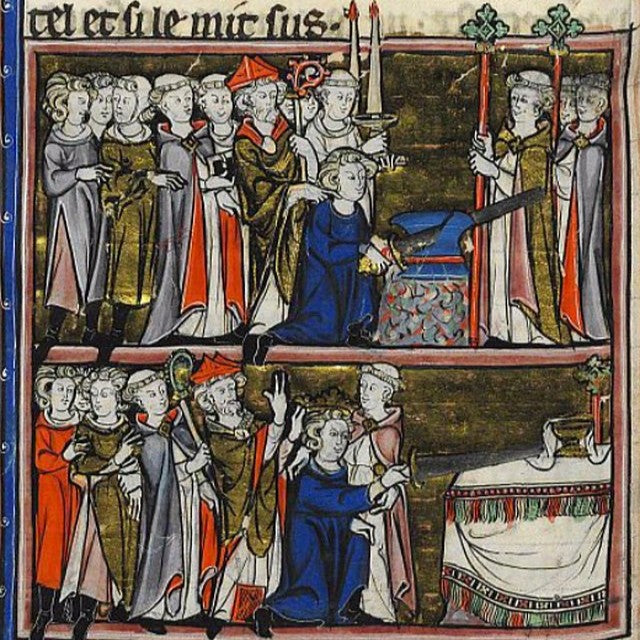 tel et si le mit sus.